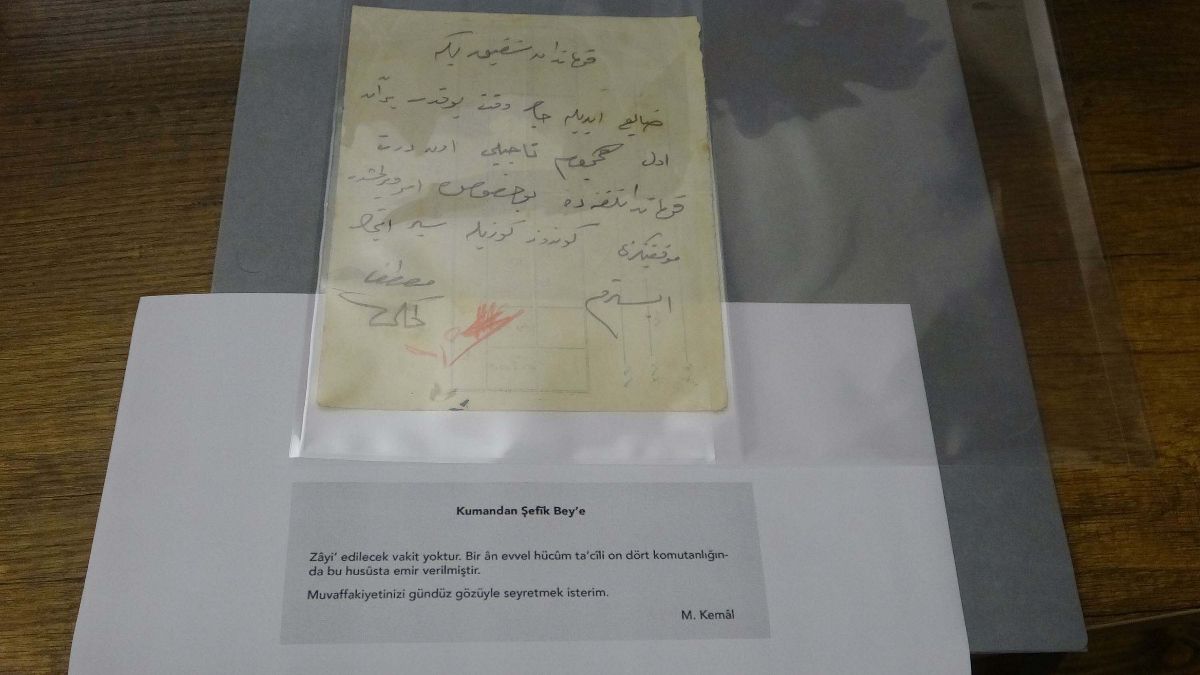 قوماندان شفیق بکه
ضایع ایدیله جك وقت یوقدر بر آن
اول هجوم تاجیلی اون درت
قوماندانلغنده بوخصوصده امر ویرلمشدر
موفقیتکزی کوندوز کوزیله سیر ایتمك
ایسترم
مصطفی
کمال
Kumandan Şefîk Bey’e
Zâyi’ edilecek vakit yoktur. Bir ân evvel hücûm ta’cîli on dört komutanlığın-
da bu husûsta emir verilmiştir.
Muvaffakiyetinizi gündüz gözüyle seyretmek isterim.
M. Kemâl